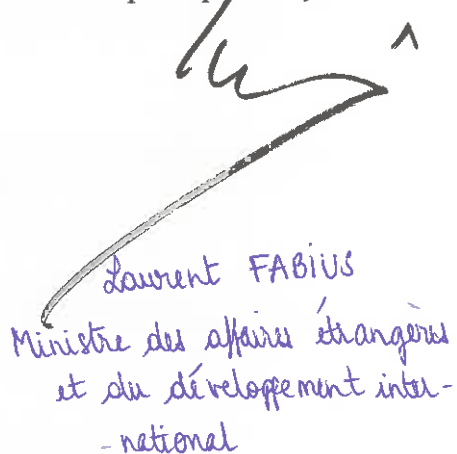 Laurent FABIUS
Ministre des affaires étrangères
et du développement inter-
-national